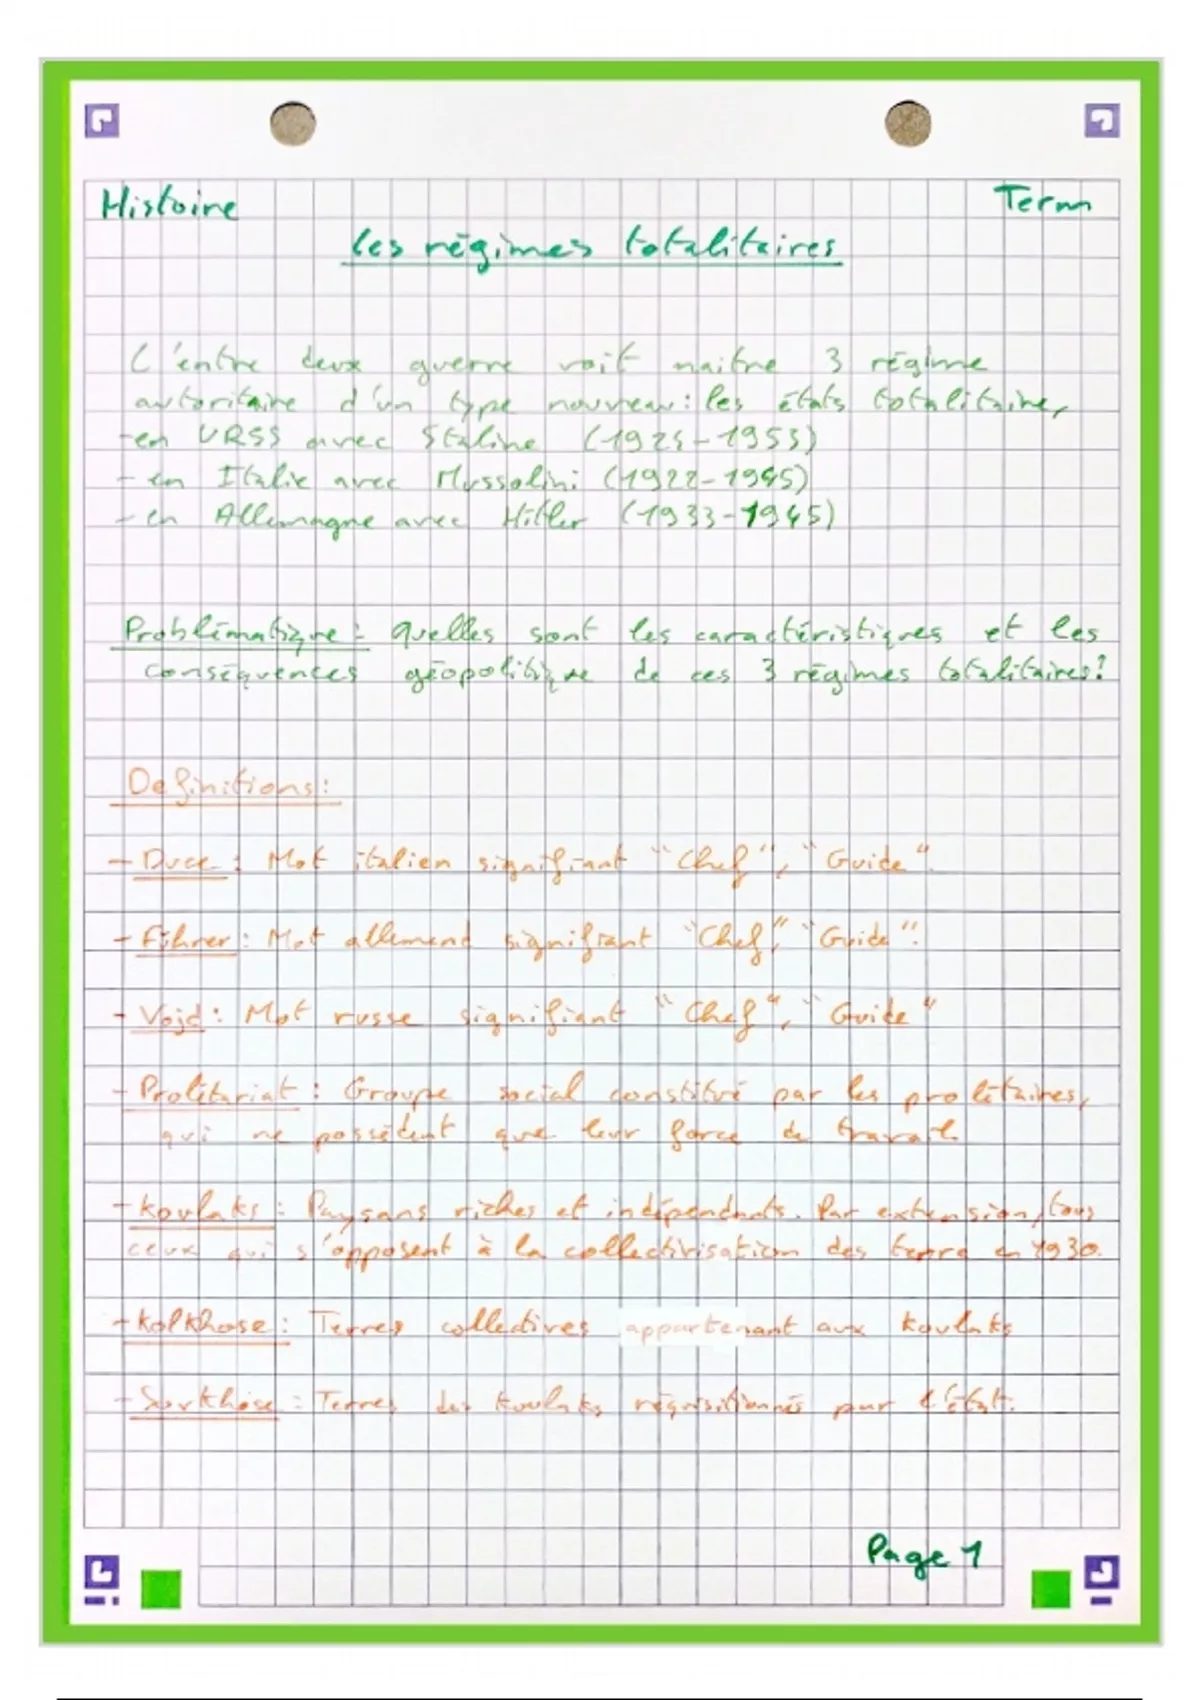 Histoire Term
Les régimes totalitaires
L'entre deux guerre voit naitre 3 régime
autoritaire d'un type nouveau : les états totalitaire,
- en URSS avec Staline (1924-1953)
- en Italie avec Mussolini (1922-1945)
- en Allemagne avec Hitler (1933-1945)
Problématique : Quelles sont les caractéristiques et les
conséquences géopolitique de ces 3 régimes totalitaires?
Definitions :
- Duce : Mot italien signifiant "Chef", "Guide".
- Führer : Mot allemend signifiant "Chef", "Guide".
- Vojd : Mot russe signifiant "Chef", "Guide"
- Prolétariat : Groupe social constitué par les prolétaires,
qui ne possèdent que leur force de travail
- Koulaks : Paysans riches et indépendnats. Par extension, tous
ceux qui s'opposent à la collectivisation des terre en 1930.
- Kolkhose : Terres collectives appartenant aux Koulaks
- Sovkhose : Terres des Koulaks réquisitionnés par l'état.
Page 1